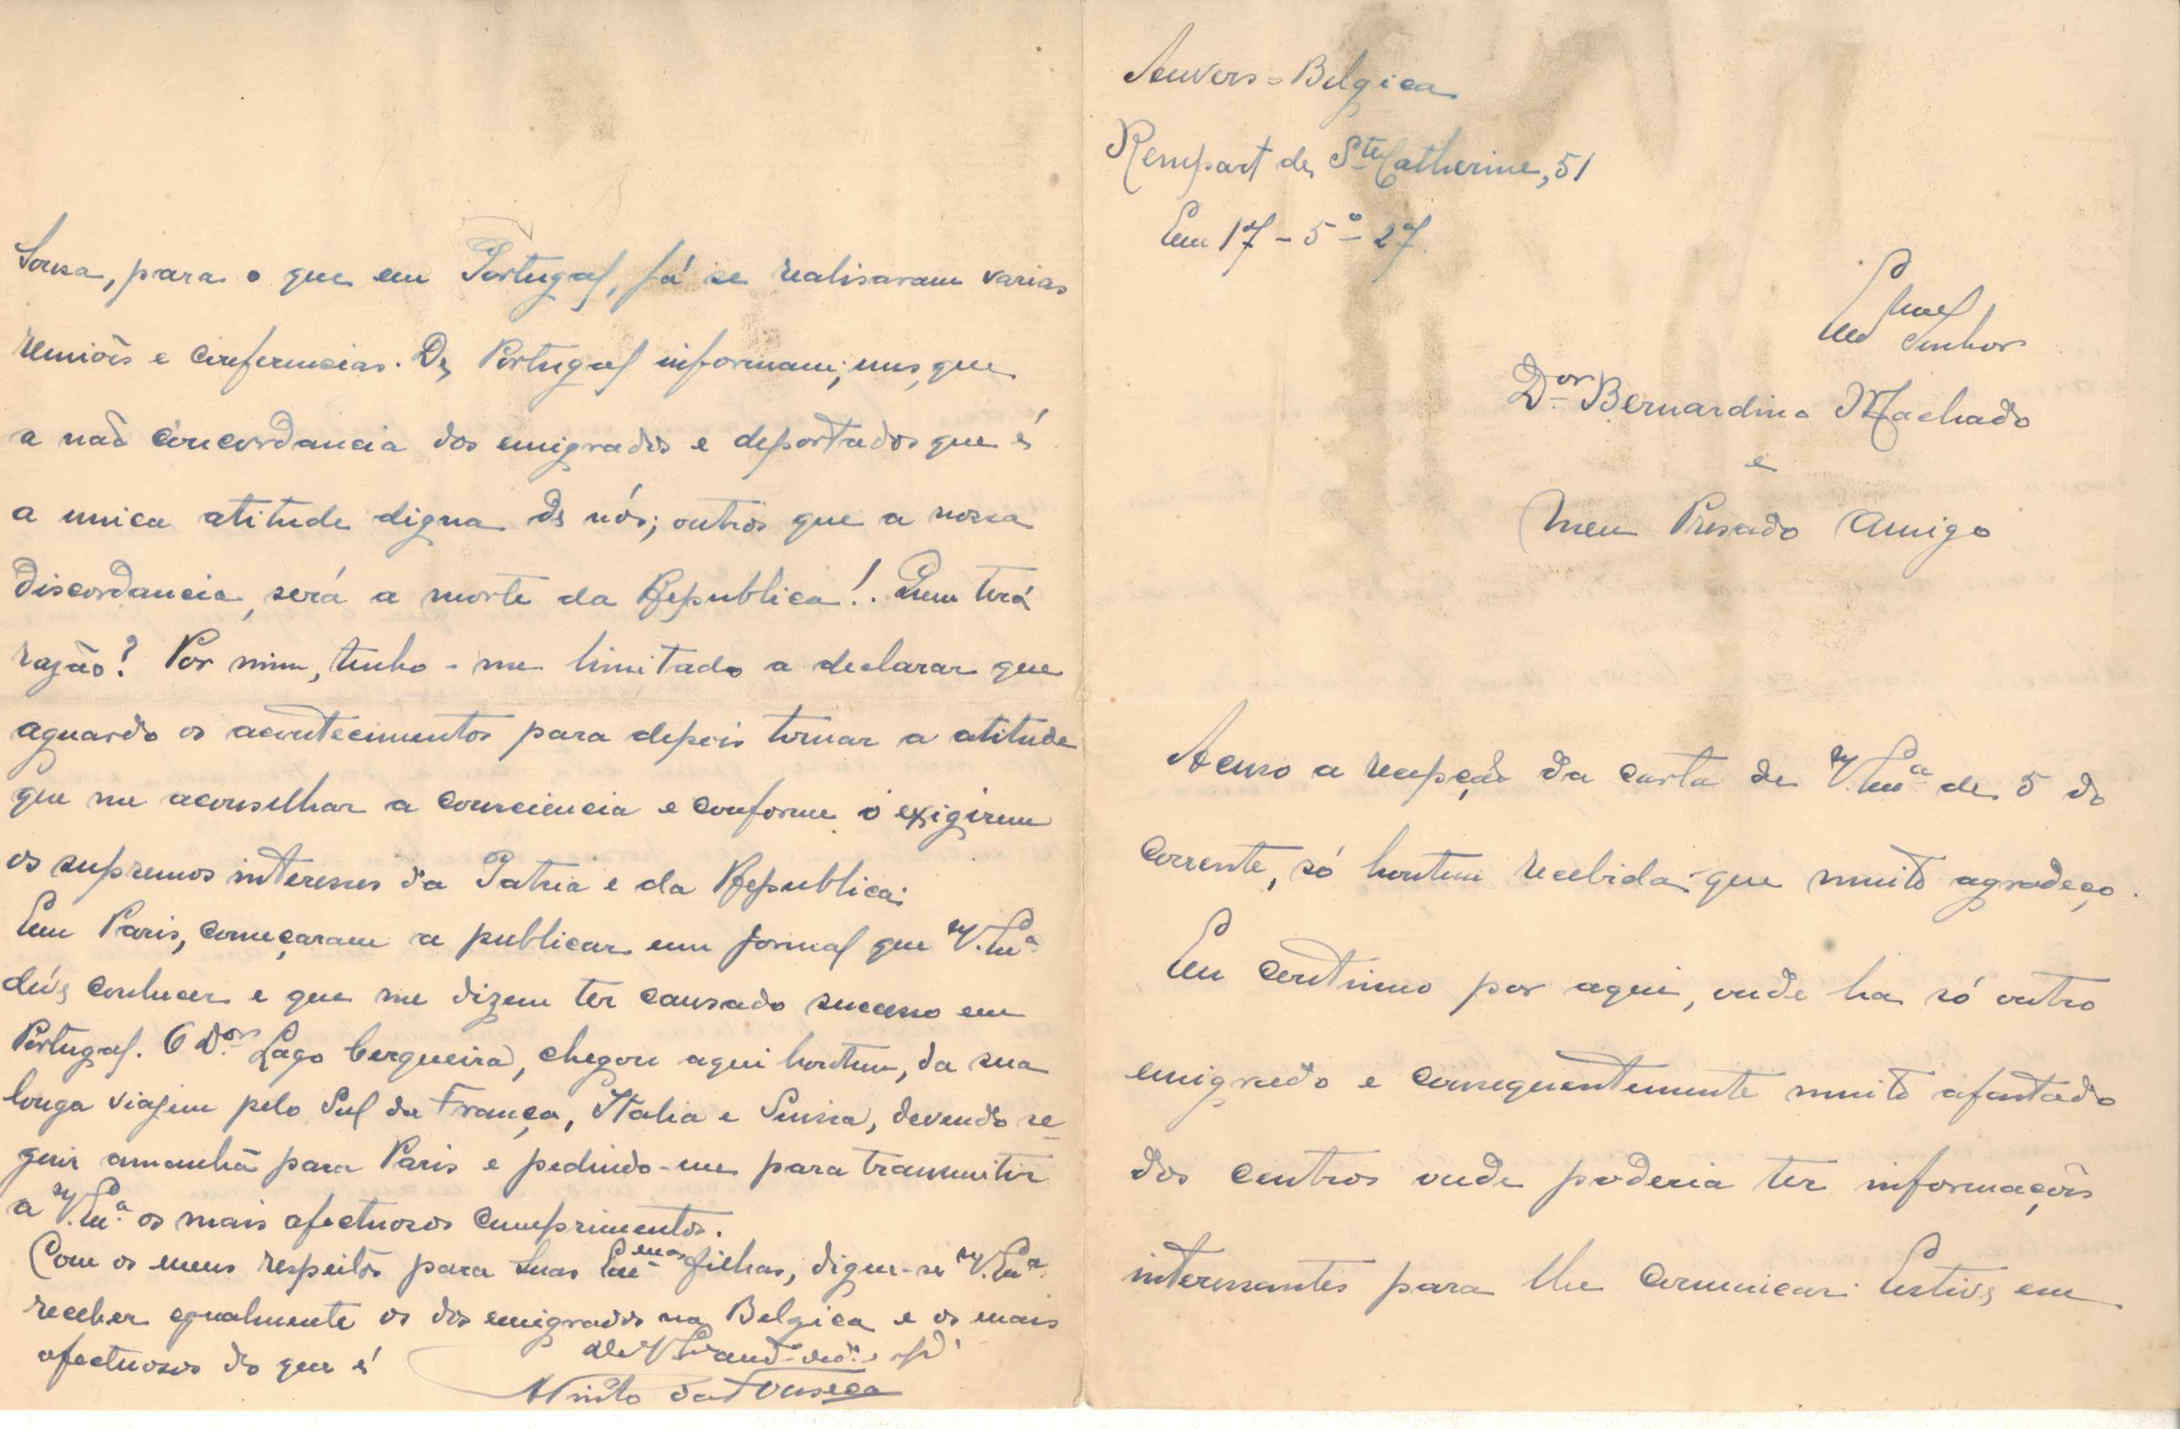 Anvers = Belgica
Rempart de Ste Catherine, 51
Em 17 - 5º - 27.
Exmo Senhor
Dor Bernardino Machado
e
Meu Presado Amigo
Acuso a recepção da carta de V. Exa de 5 do
corrente, só hontem recebida que muito agradeço.
Eu continuo por aqui, onde ha só outro
emigrado e consequentemente muito afastado
dos centros onde poderia ter informações
interessantes para lhe comunicar. Estive em
Sousa, para o que em Portugal, já se realisaram varias
reuniões e conferencias. De Portugal informam; uns, que
a não concordancia dos emigrados e deportados que é
a unica atitude digna de nós; outros que a nossa
discordancia, será a morte da Republica!. Quem terá
razão? Por mim, tenho-me limitado a declarar que
aguardo os acontecimentos para depois tomar a atitude
que me aconselhar a consciencia e conforme o exigirem
os supremos interesses da Patria e da Republica.
Em Paris, começaram a publicar um jornal que V. Exa
deve conhecer e que me dizem ter causado sucesso em
Portugal. O Dor Lago Cerqueira, chegou aqui hontem, da sua
longa viajem pelo Sul da França, Italia e Suissa, devendo se-
guir amanhã para Paris e pedindo-me para transmitir
a V. Exa. os mais afectuosos cumprimentos.
Com os meus respeitos para suas Exmas filhas, digne-se V. Exa
receber egualmente os dos emigrados na Belgica e os mais
afectuosos do que é
de V.
da Fonseca